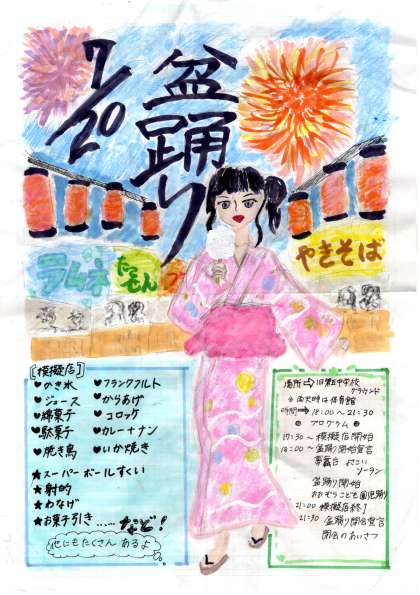 7/20
盆踊り
ラムネ
たこせん
やきそば
[模擬店]
♥かき氷
♥ジュース
♥綿菓子
♥駄菓子
♥焼き鳥
♥フランクフルト
♥からあげ
♥コロッケ
♥カレーナン
♥いか焼き
★スーパーボールすくい
★射的
★わなげ
★お菓子引き……など!
他にもたくさんあるよ
グラウンド
※雨天時は体育館
時間⇒18:00〜21:30
プログラム
17:30〜模擬店開始
18:00〜盆踊り開始宣言
よさこい
ソーラン
盆踊り開始
21:00 模擬店終了
21:30 盆踊り閉会宣言
閉会のあいさつ